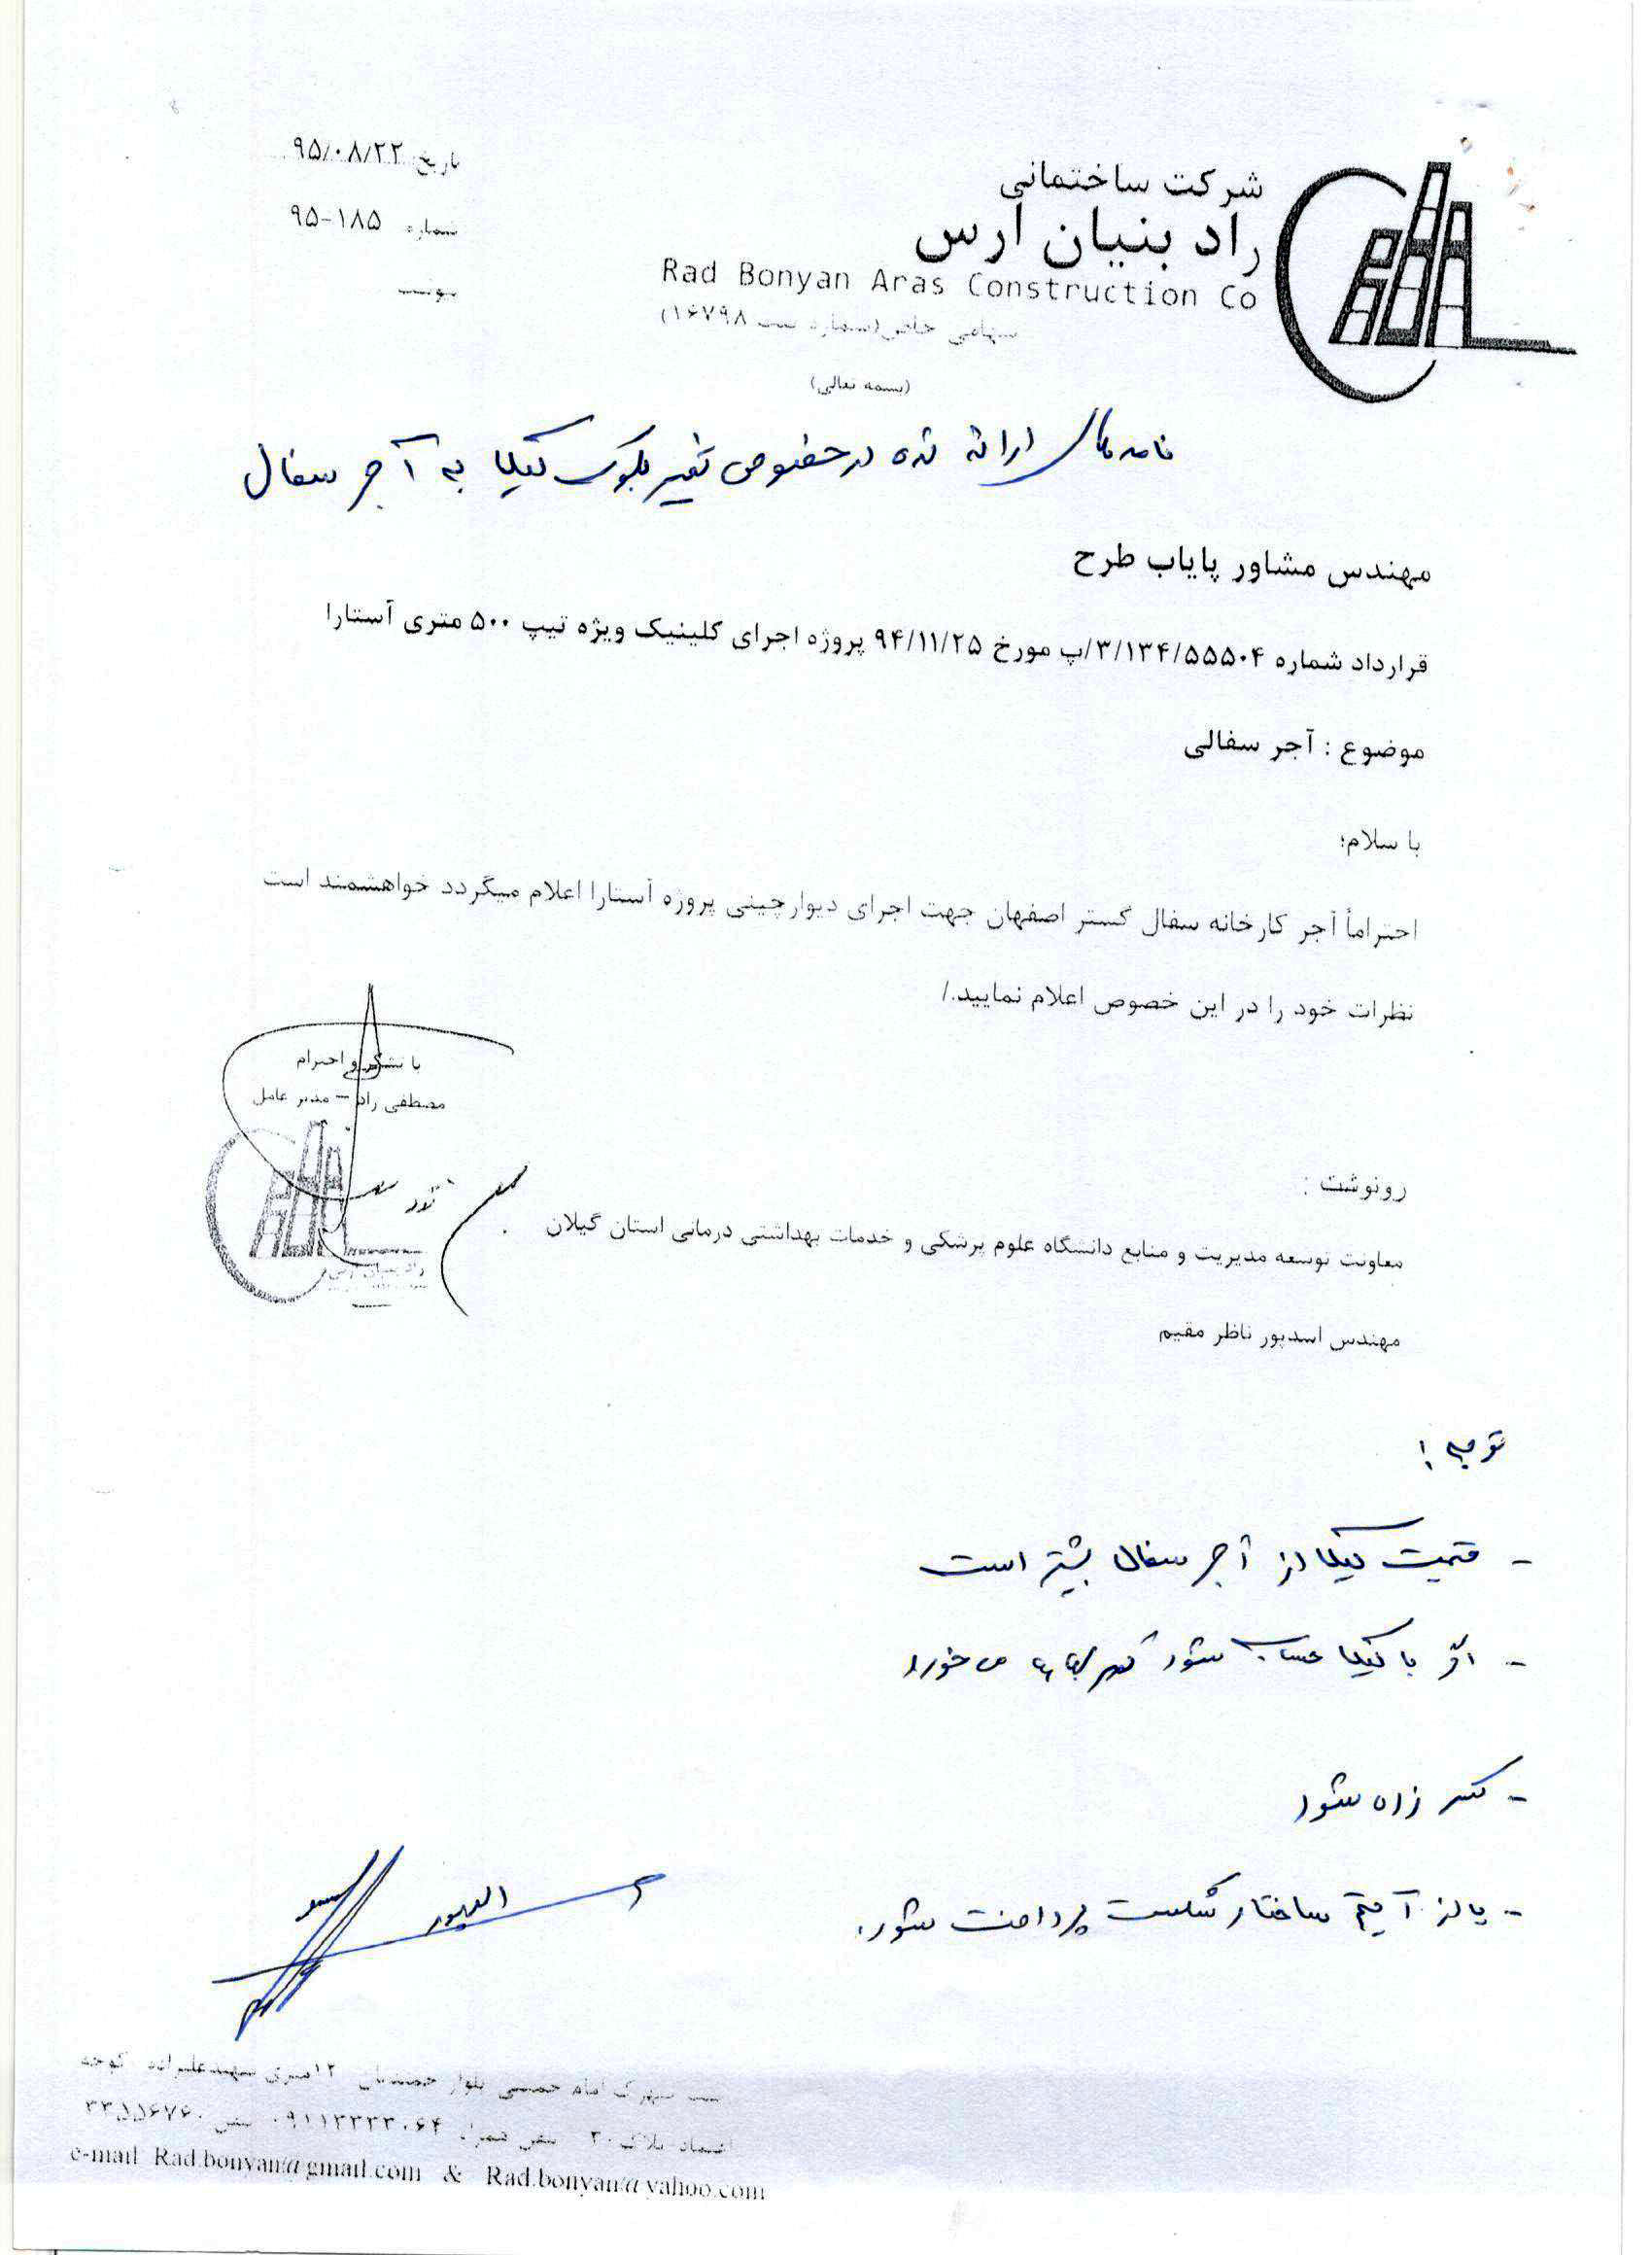 تاریخ: ۹۵/۰۸/۲۲
شماره ۹۵-۱۸۵
پیوست
شرکت ساختمانی
راد بنیان ارس
Rad Bonyan Aras Construction Co
سهامی خاص(شماره ثبت ۱۶۷۹۸)
(بسمه تعالی)
نامه های ارائه شده در خصوص تغییر بلوک لیکا به آجر سفال
مهندس مشاور پایاب طرح
قرارداد شماره ۳/۱۳۴/۵۵۵۰۴/پ مورخ ۹۴/۱۱/۲۵ پروژه اجرای کلینیک ویژه تیپ ۵۰۰ متری آستارا
موضوع : آجر سفالی
با سلام؛
احتراماً آجر کارخانه سفال گستر اصفهان جهت اجرای دیوارچینی پروژه آستارا اعلام میگردد خواهشمند است
نظرات خود را در این خصوص اعلام نمایید./
با تشکر و احترام
مصطفی راد – مدیر عامل
رونوشت :
معاونت توسعه مدیریت و منابع دانشگاه علوم پزشکی و خدمات بهداشتی درمانی استان گیلان
مهندس اسدپور ناظر مقیم
توجه :
- قیمت لیکا از آجر سفال بیشتر است
- اگر با لیکا حساب شود می خورد
- زده شود
- یا از آیتم ساختار شکست پرداخت شود.
شهرک امام خمینی بلوار ۱۲متری کوچه
پلاک ۲۰ تلفن همراه ۰۹۱۱۲۳۳۳۰۶۴ تلفن ۳۳۵۵۶۷۶۰
e-mail Rad.bonyan@gmail.com & Rad.bonyan@yahoo.com